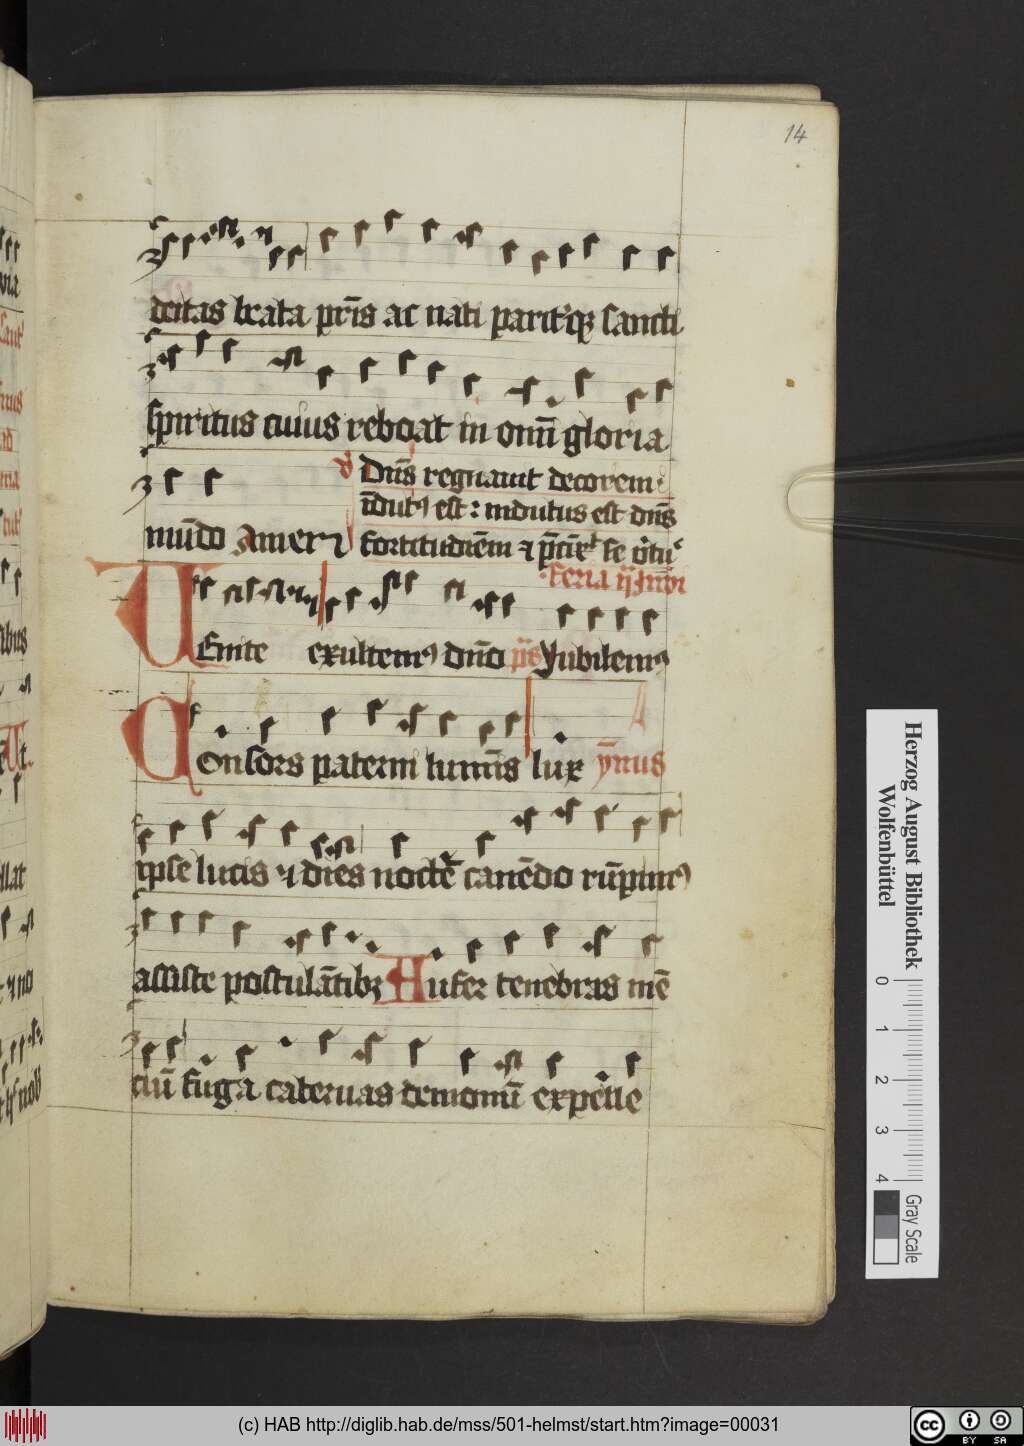 14
deitas beata pr̄is ac nati parit'q₃ sancti
spiritus cuius reboat in omī gloria
mūdo Amen
℣ Dn̄s regnauit decorem
īdutꝰ est : indutus est dn̄s
fortitudīem ⁊ p̄cīx̄ᵗ se v̓tuᵉ
feria ij
Uenite exultemꝰ dn̄o p̄s Jubilemꝰ
Consors paterni lumīs lux ymnus
ipse lucis ⁊ dies noctē canēdo rūpimꝰ
assiste postulātib₃ Aufer tenebras mē
ciū fuga cateruas demonū expelle
Herzog August Bibliothek
Wolfenbüttel
0 1 2 3 4
Gray Scale
(c) HAB http://diglib.hab.de/mss/501-helmst/start.htm?image=00031
cc BY SA